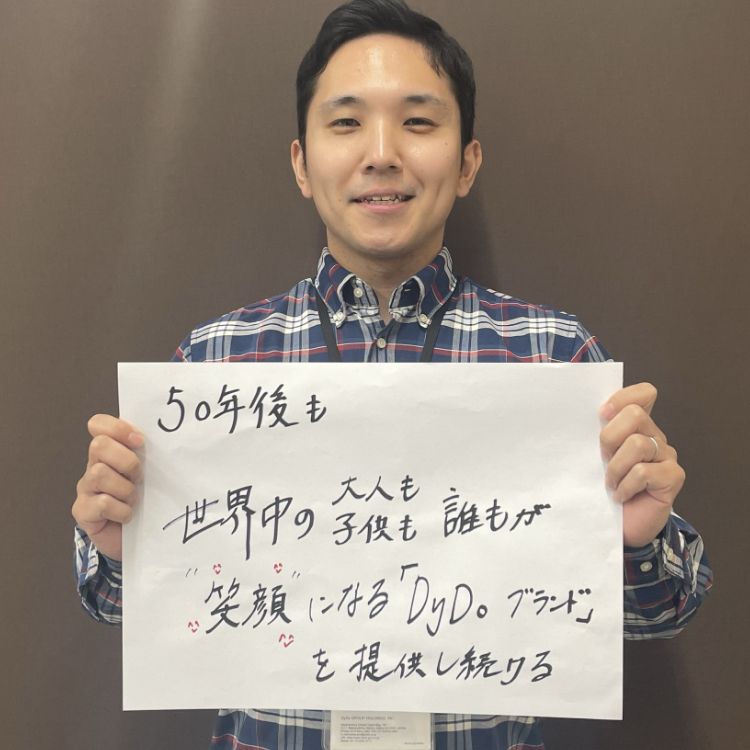 50年後も
世界中の 大人も 子供も 誰もが
"笑顔"になる「DyDo ブランド」
を提供し続ける
DyDo GROUP HOLDINGS, INC.